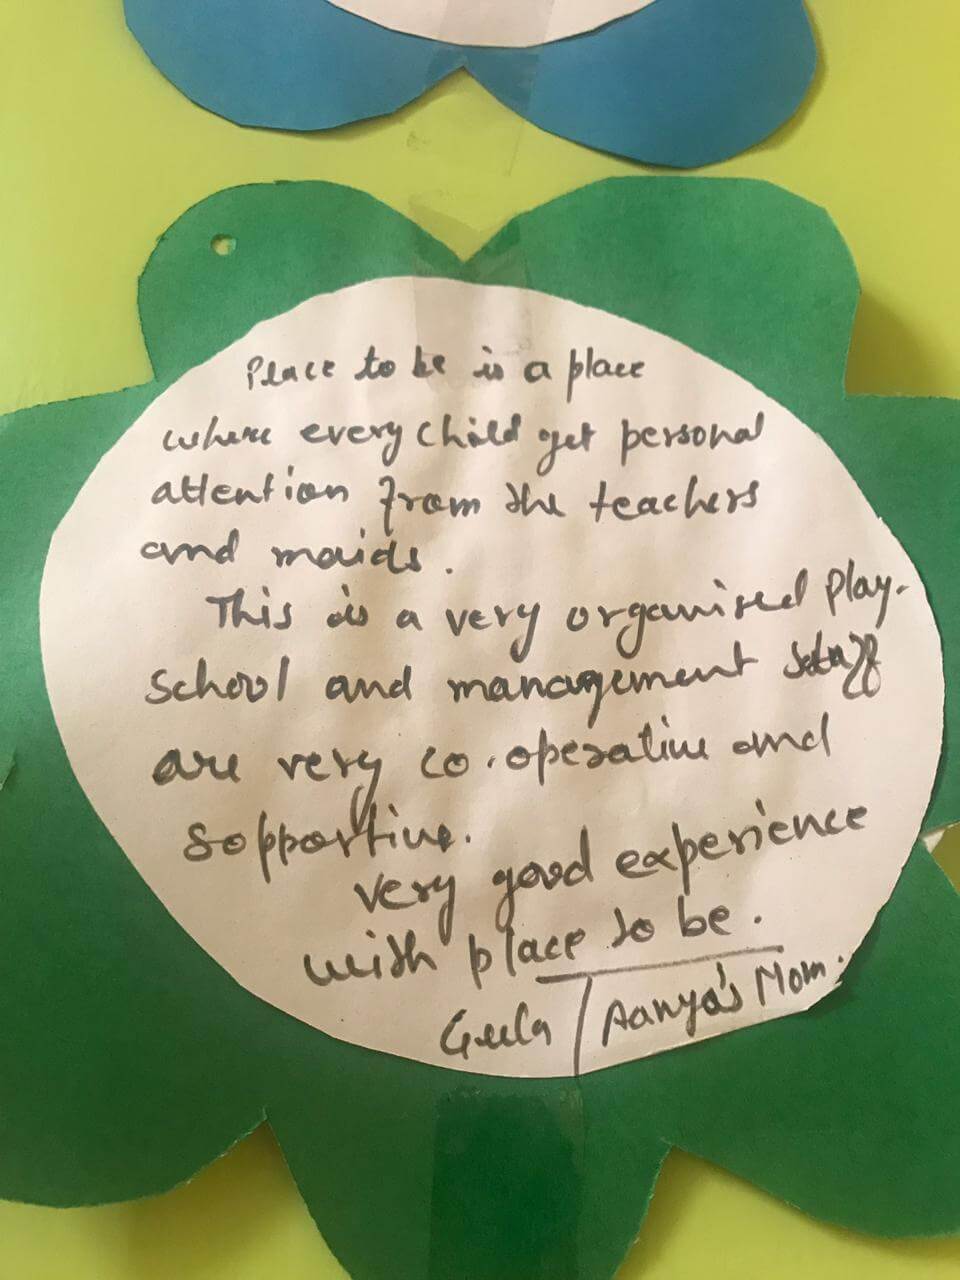 Place to be is a place
where every child get personal
attention from the teachers
and maids.
This is a very organised play-
school and management staff
are very co-operative and
sopportive.
very good experience
with place to be.
Aanya's Mom.